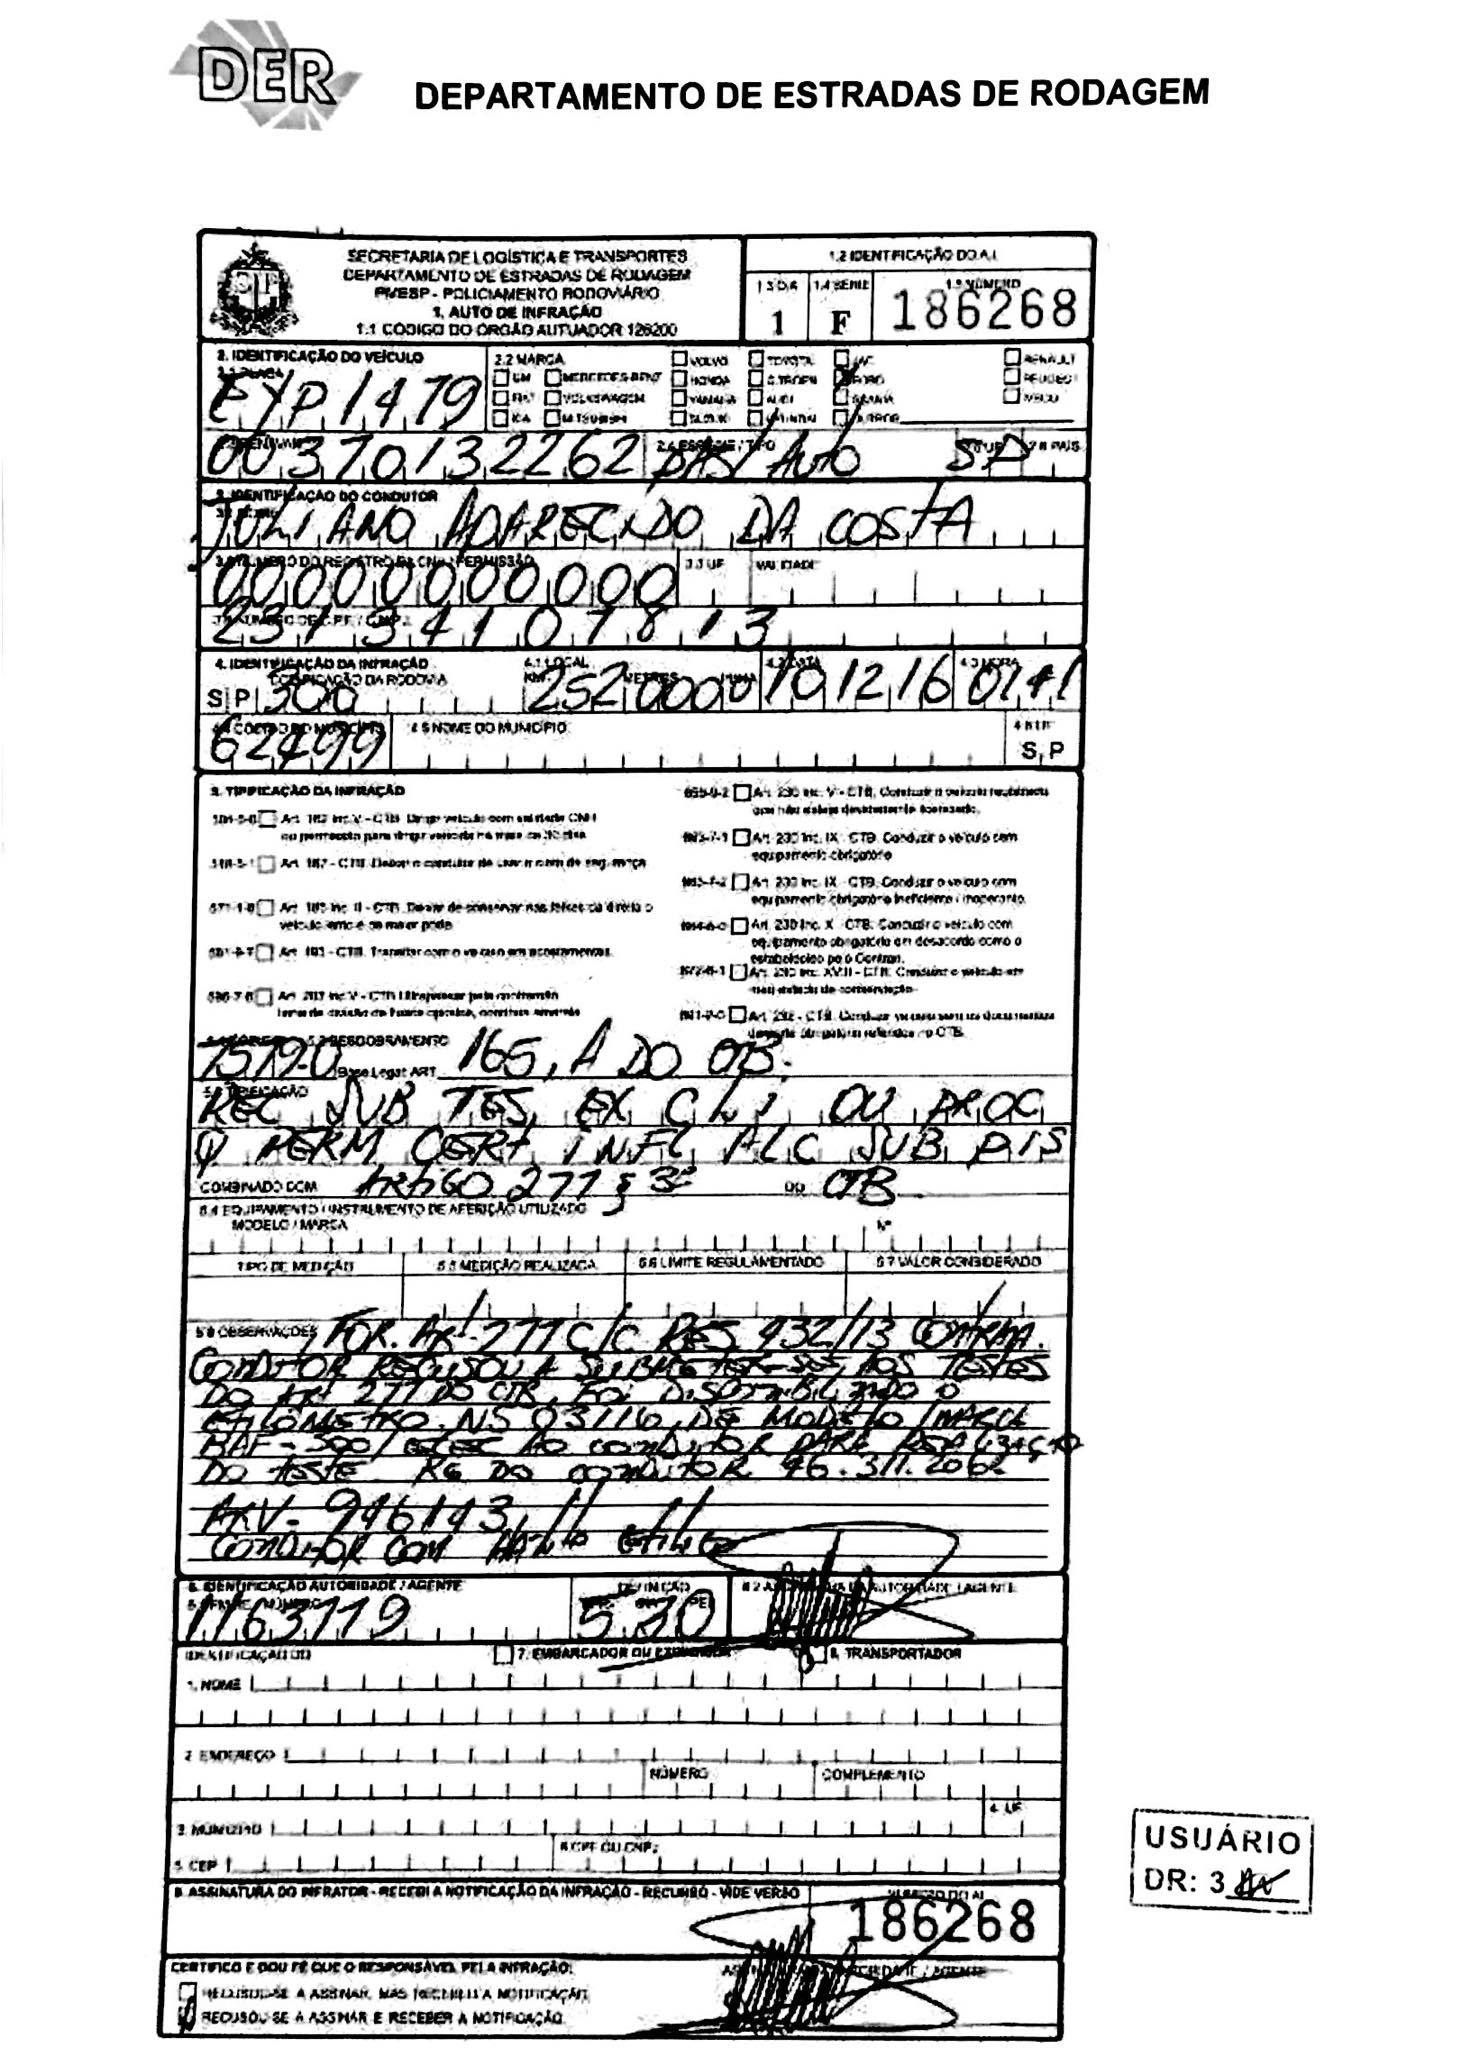 DER
DEPARTAMENTO DE ESTRADAS DE RODAGEM
SECRETARIA DE LOGÍSTICA E TRANSPORTES
DEPARTAMENTO DE ESTRADAS DE RODAGEM
PMESP - POLICIAMENTO RODOVIÁRIO
1. AUTO DE INFRAÇÃO
1.1 CÓDIGO DO ÓRGÃO AUTUADOR 126200
1.2 IDENTIFICAÇÃO DO A.I.
1.4 SÉRIE 1.5 NÚMERO
1 F 186268
2. IDENTIFICAÇÃO DO VEÍCULO
2.1 PLACA
EYP1479
2.2 MARCA
VOLVO TOYOTA JAC RENAULT
GM MERCEDES-BENZ HONDA CITROEN FORD PEUGEOT
FIAT VOLKSWAGEM YAMAHA AUDI SCANIA IVECO
KIA MITSUBISHI SUZUKI HYUNDAI
00370132262 2.4 ESPÉCIE / TIPO PAS/Auto SP PAÍS
3. IDENTIFICAÇÃO DO CONDUTOR
JULIANO APARECIDO DA COSTA
3.2 NÚMERO DO REGISTRO DA CNH / PERMISSÃO 3.3 UF VALIDADE
00000000000
23134107813
4. IDENTIFICAÇÃO DA INFRAÇÃO 4.1 LOCAL 4.2 DATA 4.3 HORA
CODIFICAÇÃO DA RODOVIA KM METROS
SP 300 252 0000 101216 0141
4.4 CÓDIGO DO MUNICÍPIO 4.5 NOME DO MUNICÍPIO 4.6 UF
62499 SP
5. TIPIFICAÇÃO DA INFRAÇÃO
501-5-0 Art. 162 inc V - CTB. Dirigir veículo com validade CNH
ou permissão para dirigir vencida há mais de 30 dias
518-5-1 Art. 167 - CTB. Deixar o condutor de usar o cinto de segurança
571-1-0 Art. 185 inc. II - CTB. Deixar de conservar nas faixas da direita o
veículo lento e de maior porte
581-9-7 Art. 193 - CTB. Transitar com o veículo em acostamentos.
596-7-0 Art. 203 inc V - CTB Ultrapassar pela contramão
linha de divisão de fluxos opostos, contínua amarela
659-9-2 Art. 230 inc. V - CTB. Conduzir o veículo registrado
que não esteja devidamente licenciado.
663-7-1 Art. 230 inc. IX - CTB. Conduzir o veículo sem
equipamento obrigatório
663-7-2 Art. 230 inc. IX - CTB. Conduzir o veículo com
equipamento obrigatório ineficiente / inoperante.
664-5-0 Art. 230 inc. X - CTB. Conduzir o veículo com
equipamento obrigatório em desacordo com o
estabelecido pelo Contran.
672-6-1 Art. 230 inc. XVIII - CTB. Conduzir o veículo em
mau estado de conservação
691-2-0 Art. 232 - CTB. Conduzir veículo sem os documentos
de porte obrigatório referidos no CTB.
5.2 DESDOBRAMENTO
7579-0 Base Legal ART. 165, A DO CTB.
REC SUB TES, EX CLI OU PROC
Q PERM CERT INFL ALC SUB PIS
COMBINADO COM ARTIGO 277 § 3º DO CTB
5.4 EQUIPAMENTO / INSTRUMENTO DE AFERIÇÃO UTILIZADO
MODELO / MARCA Nº
TIPO DE MEDIÇÃO 5.5 MEDIÇÃO REALIZADA 5.6 LIMITE REGULAMENTADO 5.7 VALOR CONSIDERADO
5.8 OBSERVAÇÕES FOR. Art 277 C/C RES 432/13
CONDUTOR RECUSOU A SUBMETER-SE AOS TESTES
DO ART 277 DO CTB, FOI DISPONIBILIZADO O
ETILOMETRO NS 03116, DE MODELO / MARCA
BAF-300 / AO CONDUTOR PARA REALIZAÇÃO
DO TESTE RG DO CONDUTOR 46.311.206
ARV- 946143
CONDUTOR COM HALITO ETILICO
6. IDENTIFICAÇÃO AUTORIDADE / AGENTE
1163779 530
IDENTIFICAÇÃO DO 7. EMBARCADOR OU EXPEDIDOR 8. TRANSPORTADOR
1. NOME
2. ENDEREÇO
NÚMERO COMPLEMENTO
3. MUNICÍPIO 4. UF
5. CEP 6. CPF OU CNPJ
9. ASSINATURA DO INFRATOR - RECEBI A NOTIFICAÇÃO DA INFRAÇÃO - RECURSO - VIDE VERSO
NÚMERO DO AI
186268
CERTIFICO E DOU FÉ QUE O RESPONSÁVEL PELA INFRAÇÃO:
RECUSOU-SE A ASSINAR, MAS RECEBEU A NOTIFICAÇÃO
RECUSOU-SE A ASSINAR E RECEBER A NOTIFICAÇÃO.
USUÁRIO
DR: 3